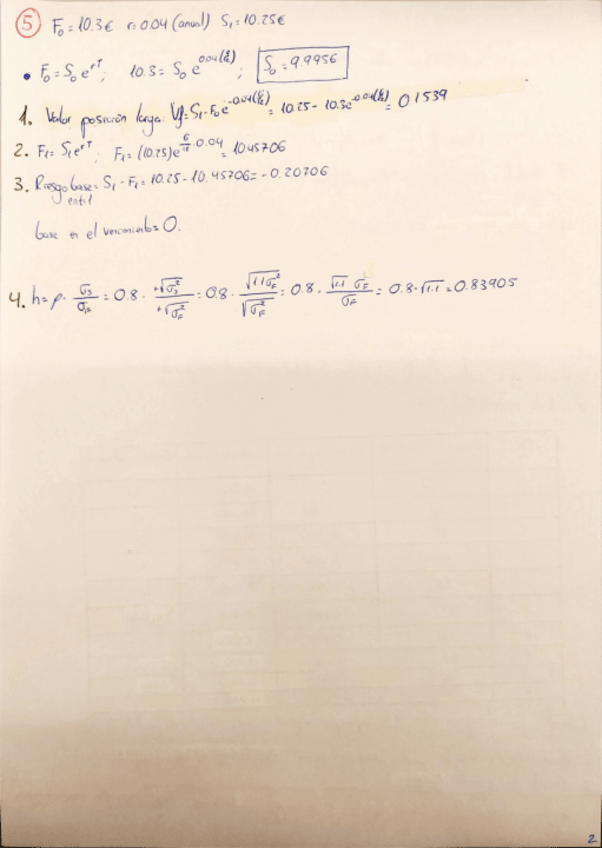 5 F₀ = 10.3€ r = 0.04 (anual) S₁ = 10.25€
• F₀ = S₀ e^{rT}; 10.3 = S₀ e^{0.04(9/12)}; S₀ = 9.9956
1. Valor posición larga: Vf = S₁ - F₀e^{-0.04(6/12)} = 10.25 - 10.3e^{-0.04(6/12)} = 0.1539
2. F₁ = S₁e^{rT}; F₁ = (10.25)e^{6/12·0.04} = 10.45706
3. Riesgo base = S₁ - F₁ = 10.25 - 10.45706 = -0.20706
en t=1
base en el vencimiento = 0.
4. h = ρ · σs/σF = 0.8 · +√σs²/+√σF² = 0.8 · √1.1σF²/√σF² = 0.8 · √1.1 σF/σF = 0.8 · √1.1 = 0.83905
2